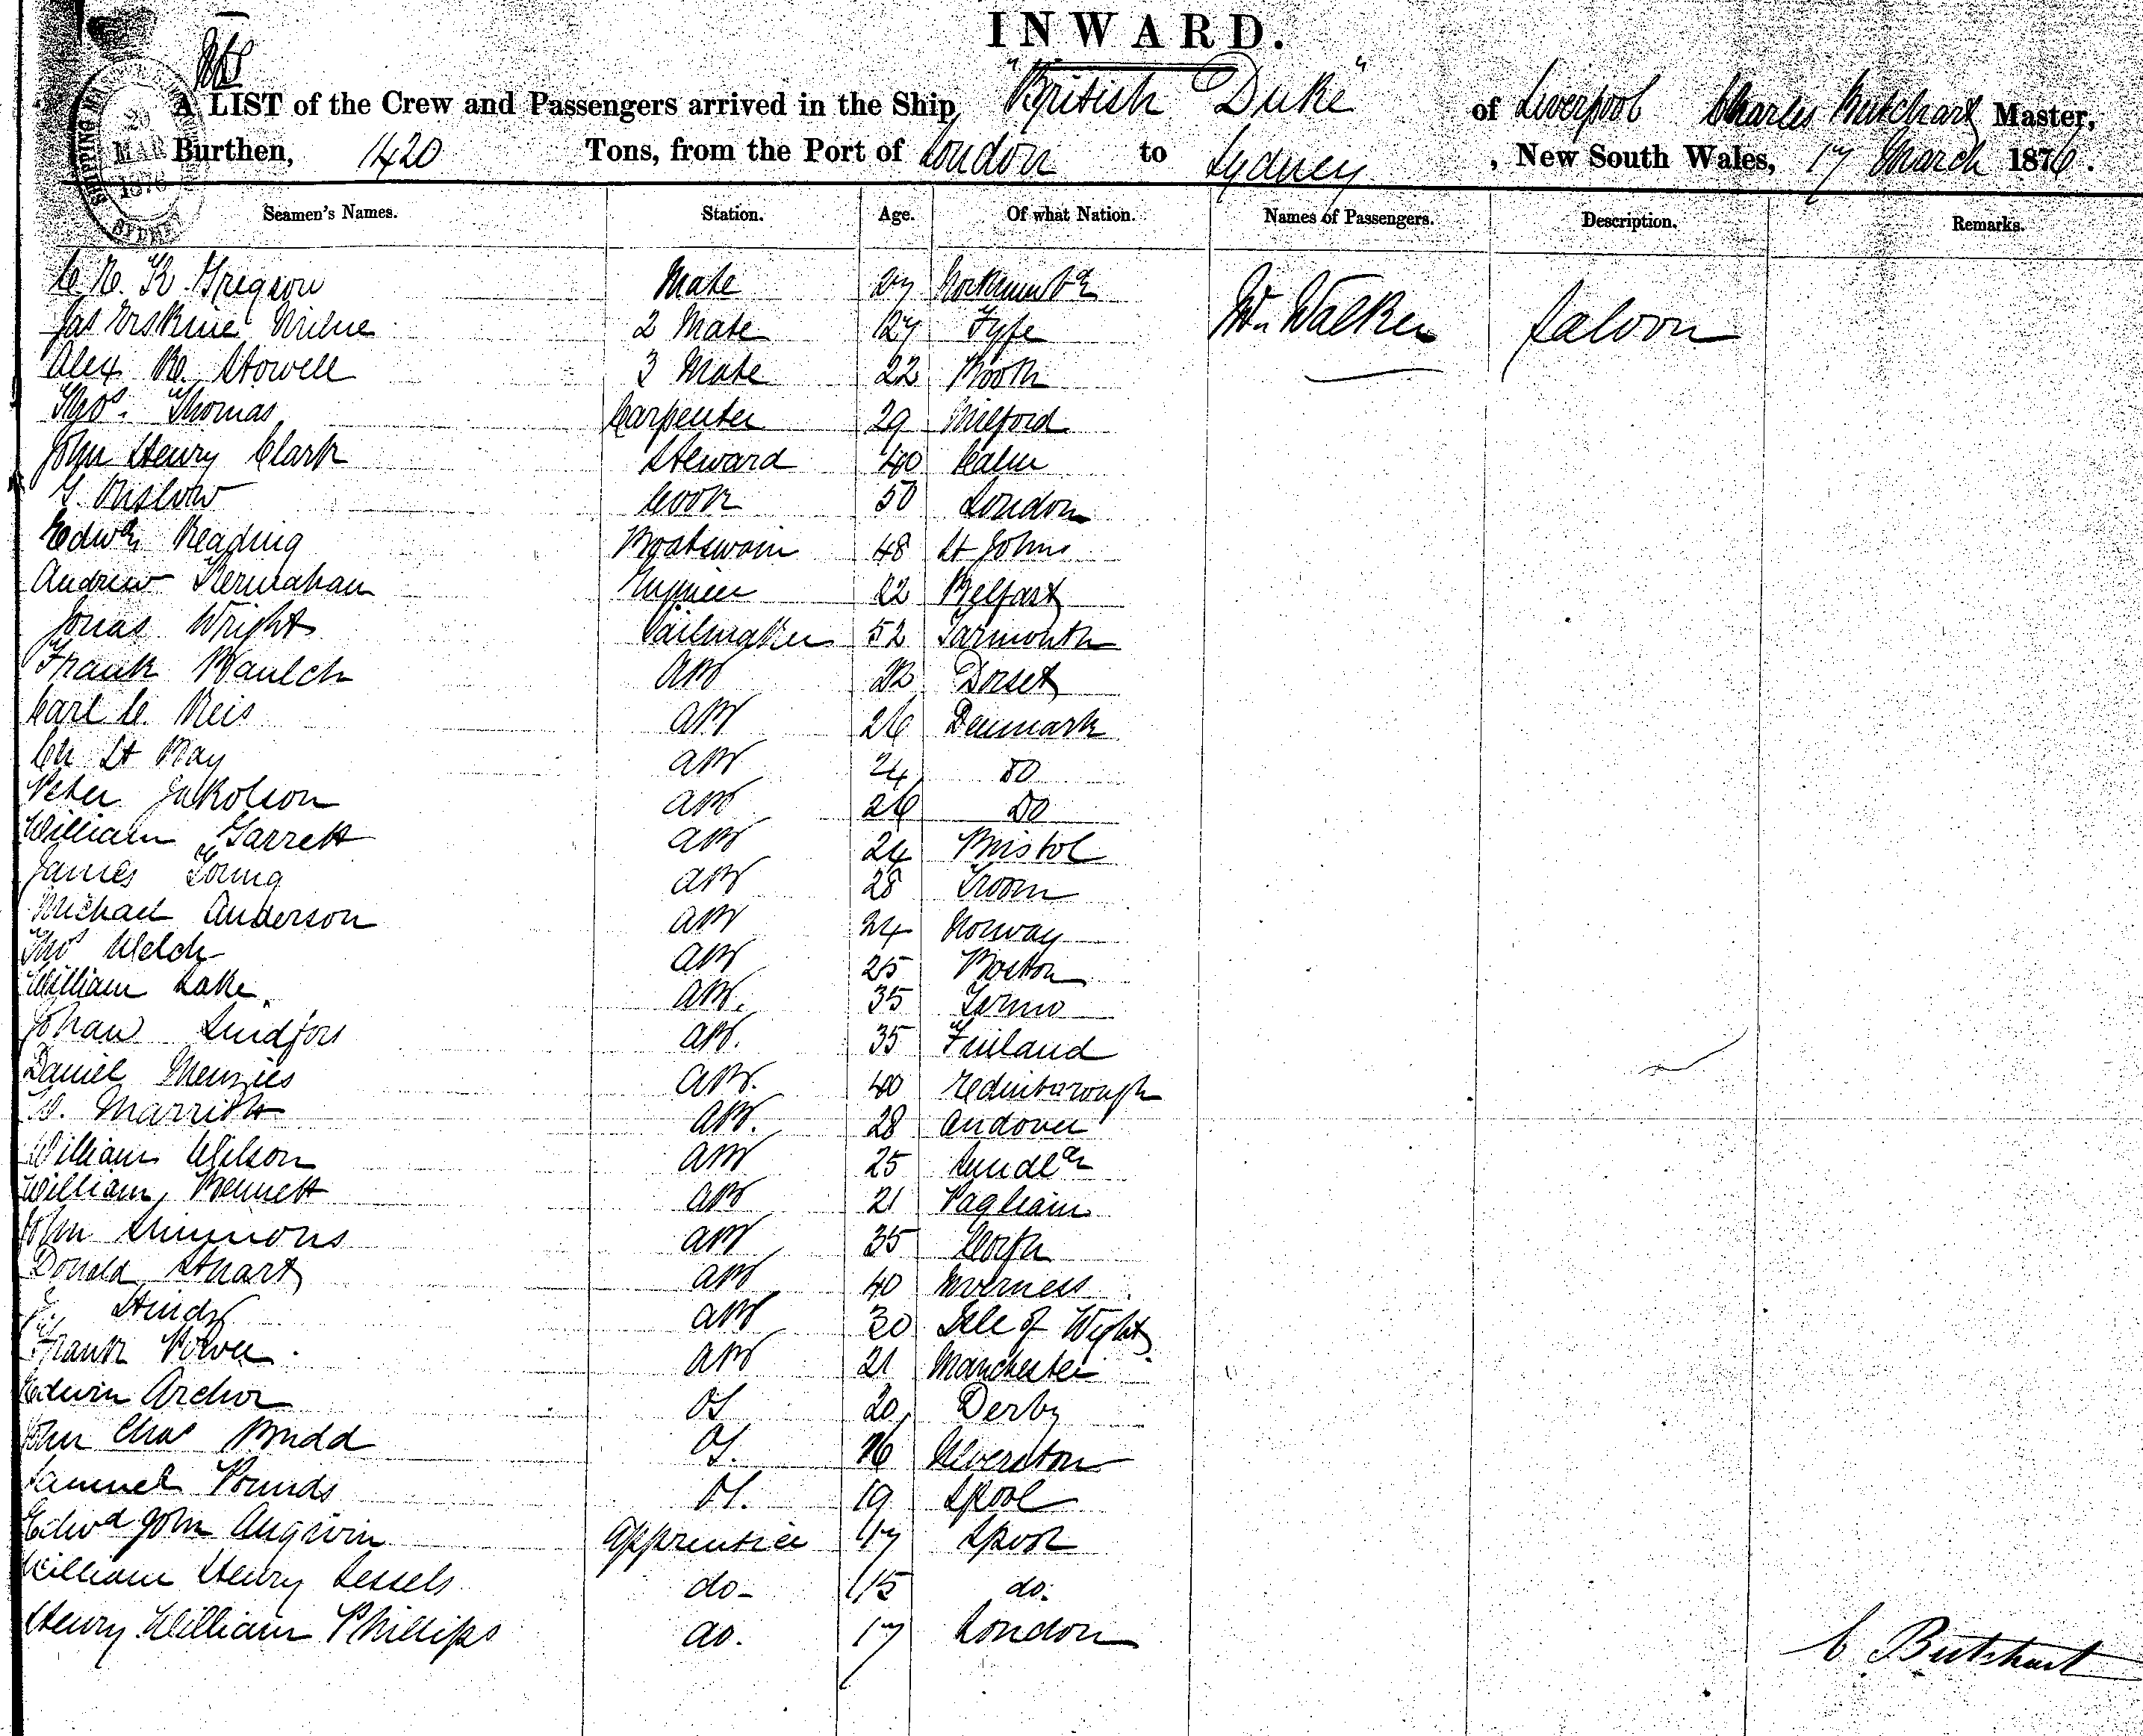 INWARD.
A LIST of the Crew and Passengers arrived in the Ship, "British Duke" of Liverpool Charles Butchart Master,
Burthen, 1420 Tons, from the Port of London to Sydney, New South Wales, 17 March 1876.
29 MAR 1876
Seamen's Names. Station. Age. Of what Nation. Names of Passengers. Description. Remarks.
C. R. Gregson Mate 27 Mr Walker Saloon
Jas Erskine Milne 2 Mate 27 Fyfe
Alex Stowell 3 Mate 22
Thos. Thomas Carpenter 29 Milford
John Henry Clark Steward 40
G. Onslow Cook 50 London
Edwd Reading Boatswain 48 St Johns
Andrew Kernahan Engineer 22 Belfast
Jonas Wright Sailmaker 52 Yarmouth
Frank Baulch AB 22 Dorset
Carl C. Reis AB 26 Denmark
AB 24 Do
Peter Jakolson AB 26 Do
William Garrett AB 24 Bristol
James Young AB 28 Troon
Michael Anderson AB 24 Norway
Thos Welch AB 25 Boston
William Lake AB. 35
Johan Lindfors AB. 35 Finland
Daniel Menzies AB. 40 Edinborough
Marritt AB. 28 Andover
William Wilson AB 25 Sundld
William Bennett AB 21 Pagham
John Simmons AB 35 Cork
Donald Stuart AB 40 Inverness
Hinds AB 30 Isle of Wight
Frank Power AB 21 Manchester
Edwin Archor OS 20 Derby
John Chas Budd OS. 16 Ulverston
Samuel Pounds OS. 19 Lpool
Edwd John Angwin Apprentice 17 Lpool
William Henry Sessels do- 15 do.
Henry William Phillips do. 17 London
C. Butchart